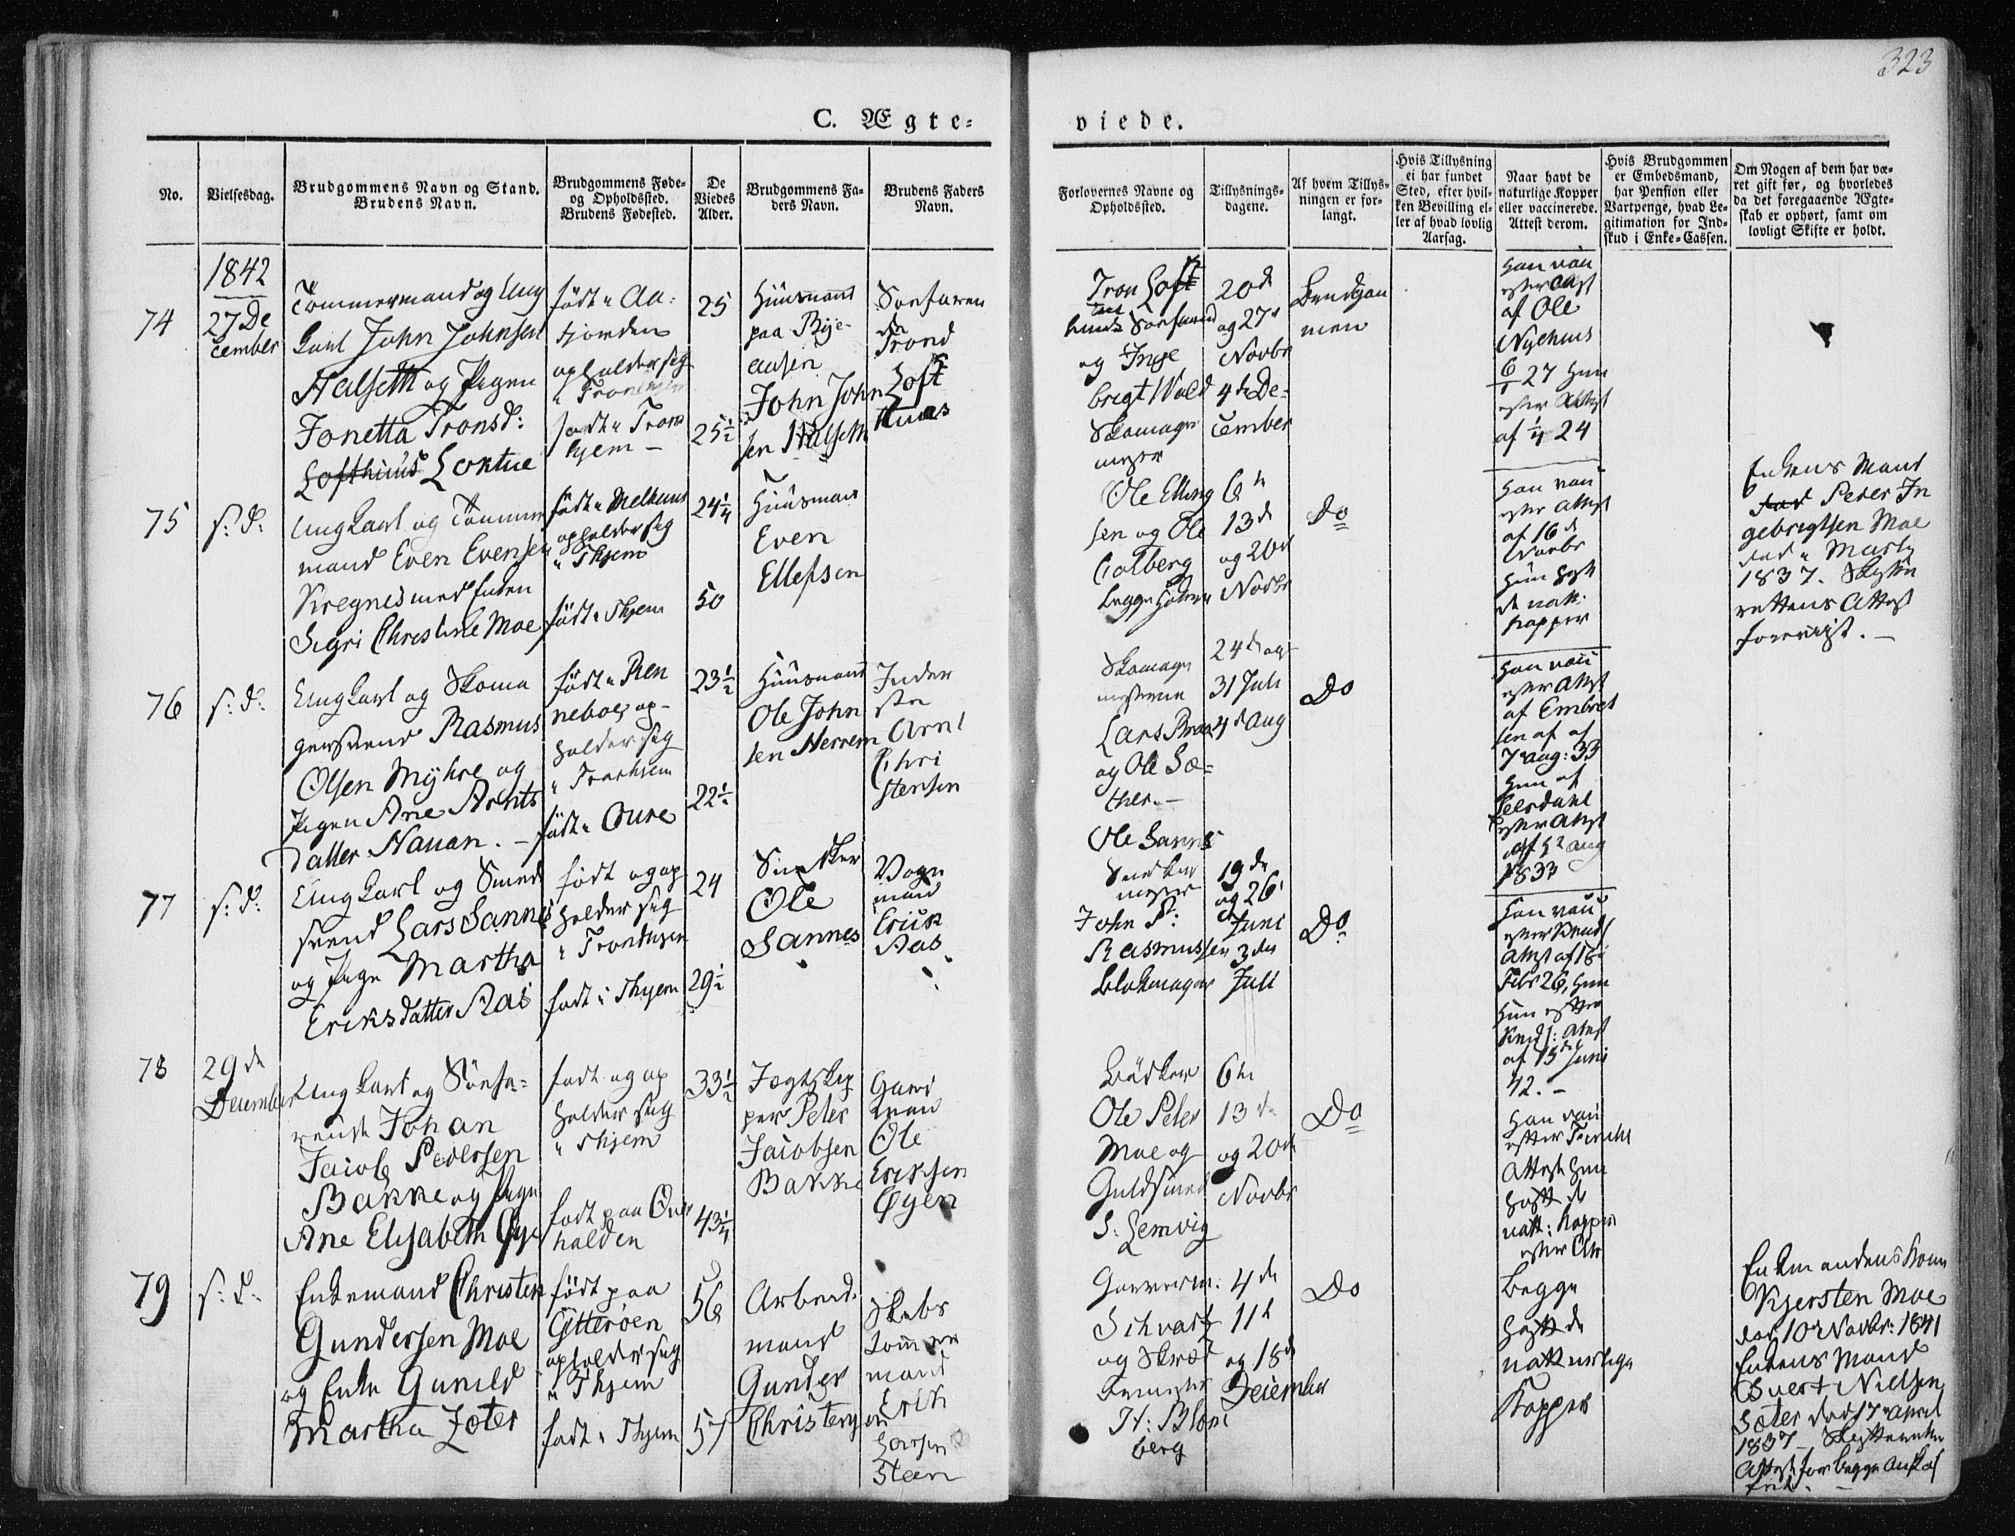 323
C. Ægte-
viede.
No.
Vielsesdag.
Brudgommens Navn og Stand.
Brudens Navn.
Brudgommens Føde-
og Opholdssted.
Brudens Fødested.
De
Viedes
Alder.
Brudgommens Fa-
ders Navn.
Brudens Faders
Navn.
Forlovernes Navne og
Opholdssted.
Tillysnings-
dagene.
Af hvem Tillys-
ningen er for-
langt.
Hvis Tillysning
ei har fundet
Sted, efter hvil-
ken Bevilling el-
ler af hvad lovlig
Aarsag.
Naar havt de
naturlige Kopper
eller vaccinerede.
Attest derom.
Hvis Brudgommen
er Embedsmand,
har Pension eller
Vartpenge, hvad Le-
gitimation for Ind-
skud i Enke-Cassen.
Om Nogen af dem har væ-
ret gift før, og hvorledes
da det foregaaende Ægte-
skab er ophørt, samt om
lovligt Skifte er holdt.
1842
74
27 De
cember
Tømmermand og Ung
Karl John Johnsen
Halseth og Pigen
Jonetta Tronsd:
Lofthuus Loktue
født i Aa-
fjorden
opholder sig
i Trondhjem
født i Trond
hjem —
25
25½
Huusmand
paa Bye-
aasen
John John
sen Halseth
Trond
Loft
huus
Tron Loft
huus
og Inge
brigt Wold
Skomager
mester
20de
og 27d
Novbr
4de De-
cember
Brudgom
men
Han vacc
efter Attest
af Ole
Nyehuus
6/1 27 Hun
efter Attest
af ¼ 24
75
s: d:
Ungkarl og Tømmer
mand Even Evensen
Kregnes med Enken
Sigri Christine Moe
født i Melhuus
opholder sig
i Thjem
født i Thjem
24¼
50
Huusmand
Even
Ellefsen
Ole Elling
sen og Ole
Colberg
begge
6te
13de
og 20de
Novbr
Do
Han vacc
efter Attest
af 16de
Novbr
Hun havt
de natl:
Kopper
Enkens Mand
Peder In
gebrigtsen Moe
død i Marts
1837. Skifte
rettens Attest
foreviist. —
76
s: d:
Ungkarl og Skoma
gersvend Rasmus
Olsen Myhre og
Pigen Ane Arnts
datter Nauan. —
født i Ren
neboe op-
holder sig
i Trondhjem
født i Oure
23½
22½
Huusmand
Ole John
sen Herrem
Inder
ste
Arnt
Chri
stensen
Skomager
mesterne
Lars
og Ole Sæ-
ther. —
24de og
31 Juli
4de Aug
Do
Han vacc
efter Attest
af Embret
sen af
7de Aug: 33
Hun af
efter Attest
af 5te Aug
1833
77
s: d:
Ungkarl og Smed
svend Lars Sannes
og Pige Martha
Eriksdatter Aas
født og op
holder sig
i Trondhjem
født i Thjem
24
29½
Snedker
Ole
Sannes
Vogn
mand
Erik
Aas
Ole Sannes
Snedker
mester
John P:
Rasmussen
Blokmager
19de
og 26d
Juni
3die
Juli
Do
Han vacc
efter
Attest af 18de
Febr 26, Hun
efter
Attest
af 15de Juni
42. —
78
29de
December
Ungkarl og Søefa-
rende Johan
Jacob Pedersen
Bakke og Pige
Ane Elisabeth Øye
født og op
holder sig
i Thjem
født paa Over
halden
33½
43¼
Jegtskip
per Peter
Jacobsen
Bakke
Gaard
mand
Ole
Eriksen
Øyen
Bødker
Ole Peter
Moe og
Guldsmed
S: Lemvig
6te
13de
og 20de
Novbr
Do
Han vacc
efter
Attest Hun
havt de
natl: Kopper
efter Att
79
s: d:
Enkemand Christen
Gundersen Moe
og Enke Gunild
Martha Zeter
født paa
Ytterøen
opholder sig
i Thjem
født i Thjem
56
57
Arbeids
mand
Gunder
Christensen
Skibs
tømmer
mand
Erik
Larsen
Steen
Garverm:
Schvartz
og Skræd
dermester
H: Blom
berg
4de
11te
og 18de
December
Do
Begge
havt de
naturlige
Kopper
Enkemandens Kone
Kjersten Moe
død 10de Novbr: 1841
Enkens Mand
Siwert Nielsen
Sæter død 17de April
1837 — Skifterettens
Attest for begge